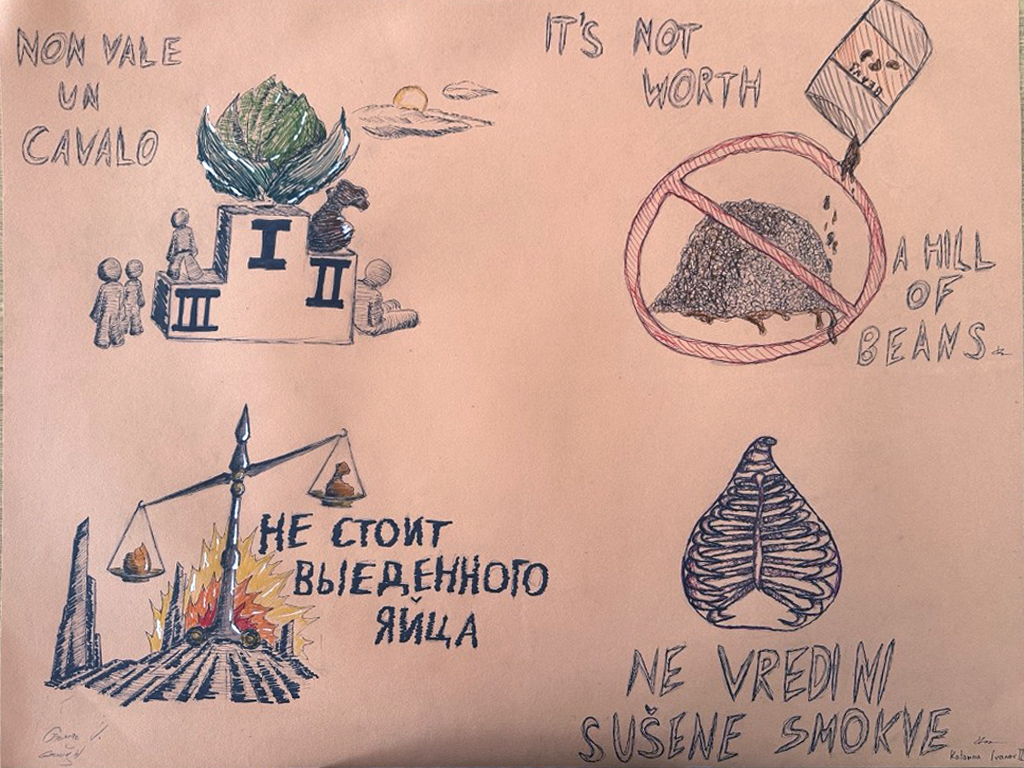 NON VALE
UN
CAVALO
I
II
III
IT'S NOT
WORTH
BEANS
A HILL
OF
BEANS
НЕ СТОИТ
ВЫЕДЕННОГО
ЯЙЦА
NE VREDI NI
SUŠENE SMOKVE